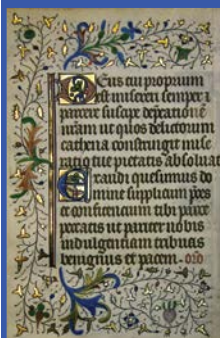 Deus cui proprium
est misereri semper et
parcere suscipe deprecatione
nram ut quos delictorum
cathena constringit mise
ratio tue pietatis absoluat
Exaudi quesumus do
mine supplicum preces
et confitentium tibi parce
peccatis ut pariter nobis
indulgentiam tribuas
benignus et pacem